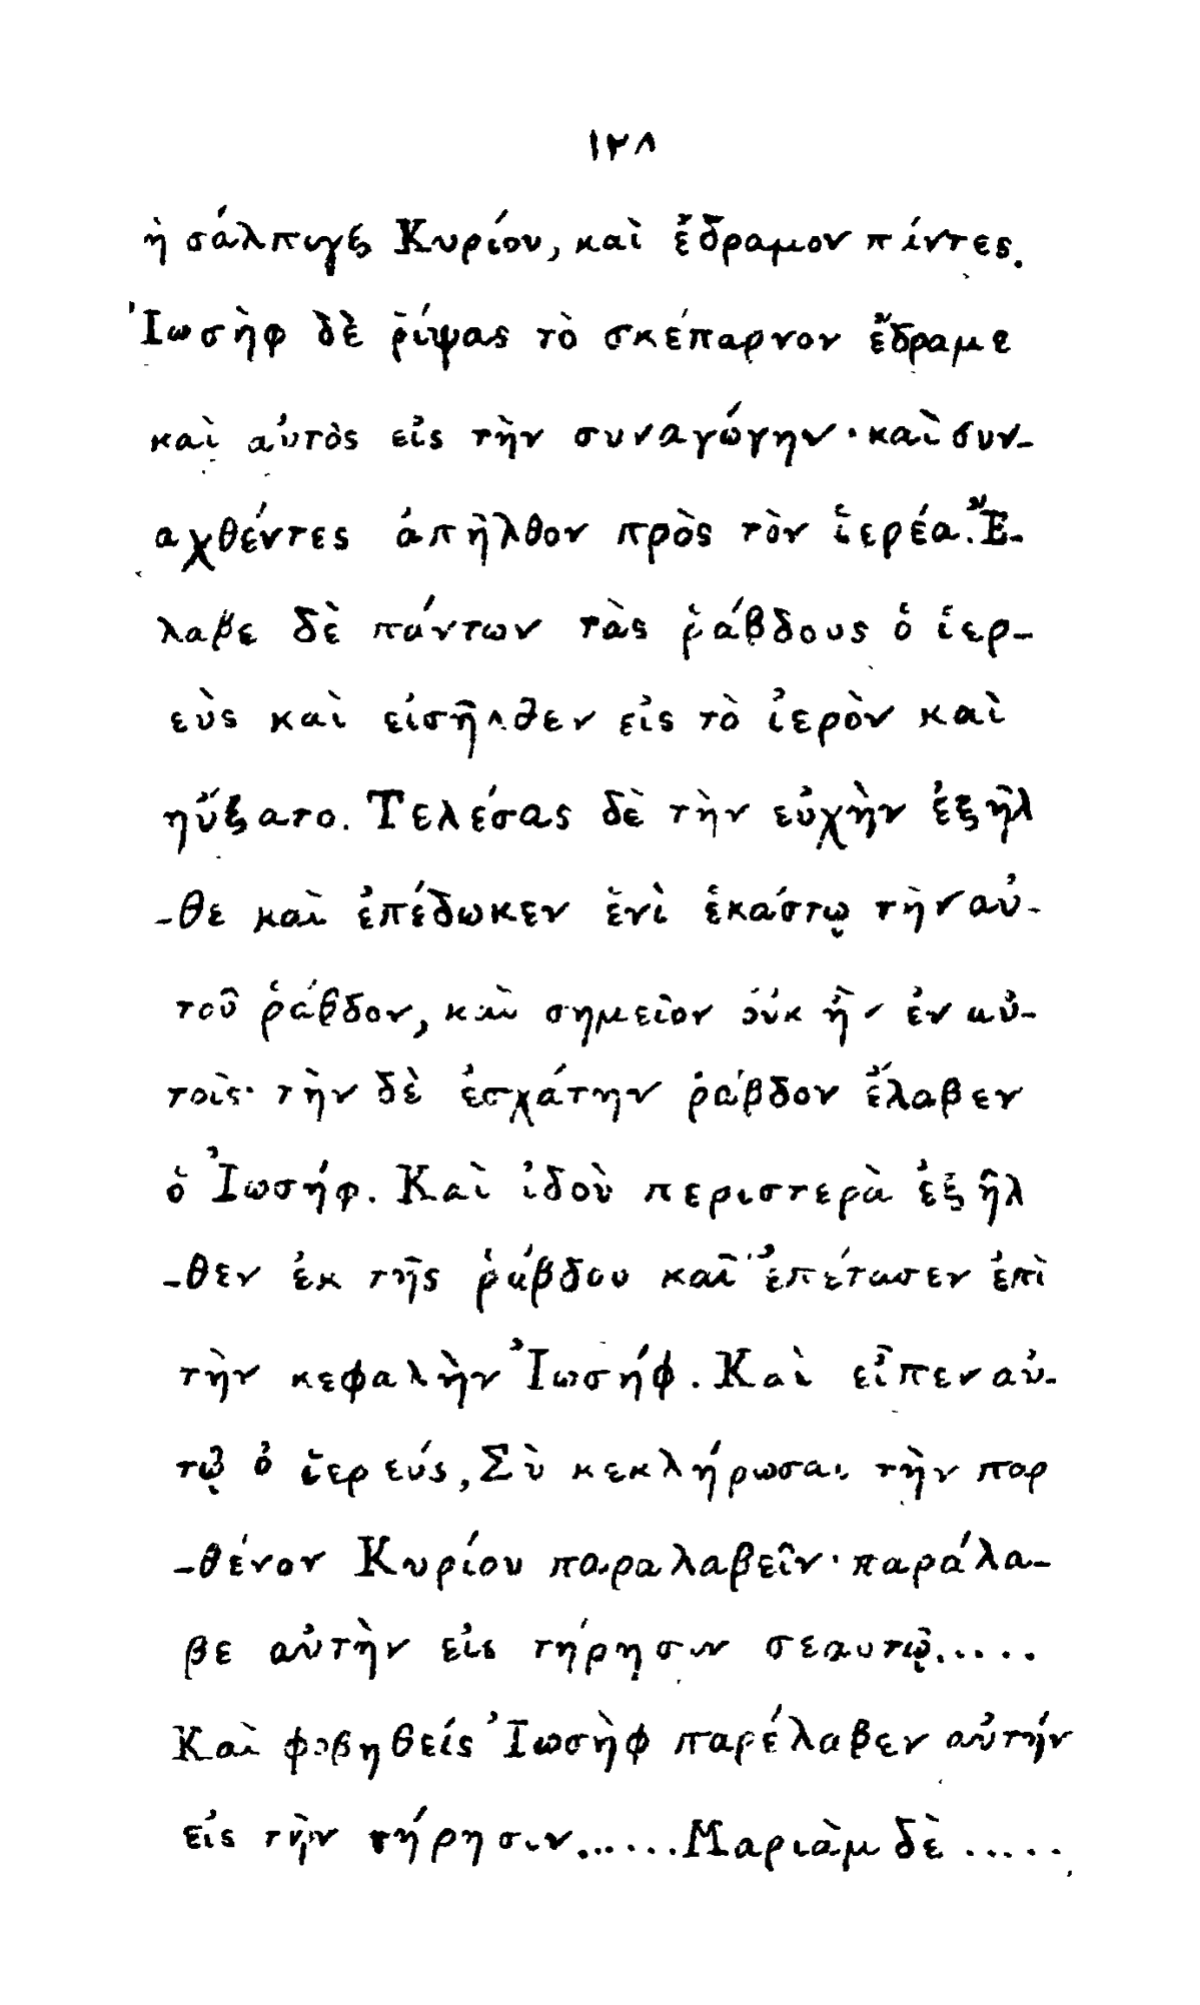 ١٢٨
ἡ σάλπιγξ Κυρίου, καὶ ἔδραμον πάντες.
Ἰωσὴφ δὲ ῥίψας τὸ σκέπαρνον ἔδραμε
καὶ αὐτὸς εἰς τὴν συναγώγην· καὶ συν-
αχθέντες ἀπῆλθον πρὸς τὸν ἱερέα. Ἔ-
λαβε δὲ πάντων τὰς ῥάβδους ὁ ἱερ-
εὺς καὶ εἰσῆλθεν εἰς τὸ ἱερὸν καὶ
ηὔξατο. Τελέσας δὲ τὴν εὐχὴν ἐξῆλ
-θε καὶ ἐπέδωκεν ἑνὶ ἑκάστῳ τὴν αὐ-
τοῦ ῥάβδον, καὶ σημεῖον οὐκ ἦν ἐν αὐ-
τοῖς· τὴν δὲ ἐσχάτην ῥάβδον ἔλαβεν
ὁ Ἰωσήφ. Καὶ ἰδοὺ περιστερὰ ἐξῆλ
-θεν ἐκ τῆς ῥάβδου καὶ ἐπέτασεν ἐπὶ
τὴν κεφαλὴν Ἰωσήφ. Καὶ εἶπεν αὐ-
τῷ ὁ ἱερεύς, Σὺ κεκλήρωσαι τὴν παρ
-θένον Κυρίου παραλαβεῖν· παράλα-
βε αὐτὴν εἰς τήρησιν σεαυτῷ.....
Καὶ φοβηθείς Ἰωσὴφ παρέλαβεν αὐτήν
εἰς τὴν τήρησιν...... Μαριὰμ δὲ .....